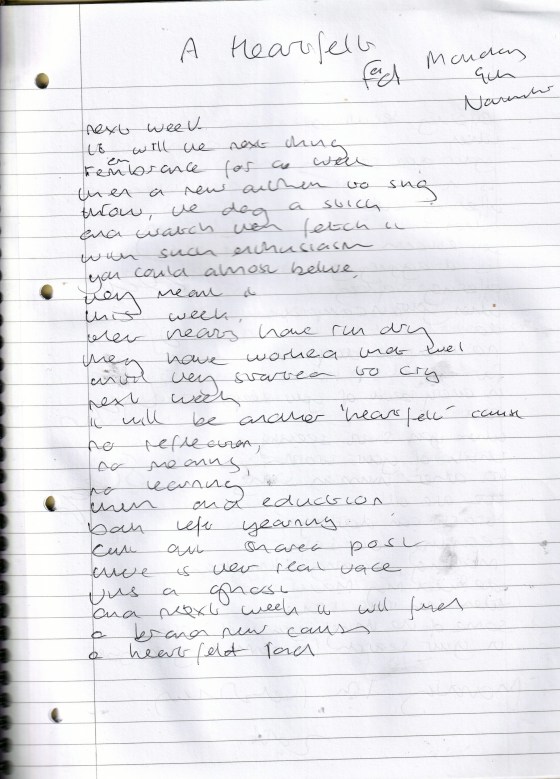 A Heartfelt
Fad Monday
9th
November
next week
it will be next thing
remembrance for a week
then a new anthem to sing
throw, the dog a stick
and watch them fetch it
with such enthusiasm
you could almost belive,
they mean it
this week,
their hearts have run dry
they have worked that well
until they started to cry
next week
it will be another 'heartfelt' cause
no reflection,
no meaning,
no learning
truth and eduction
both left yearning
call our shared past
there is their real
just a ghost
and next week it will find
a brand new cause
a heartfeldt fad